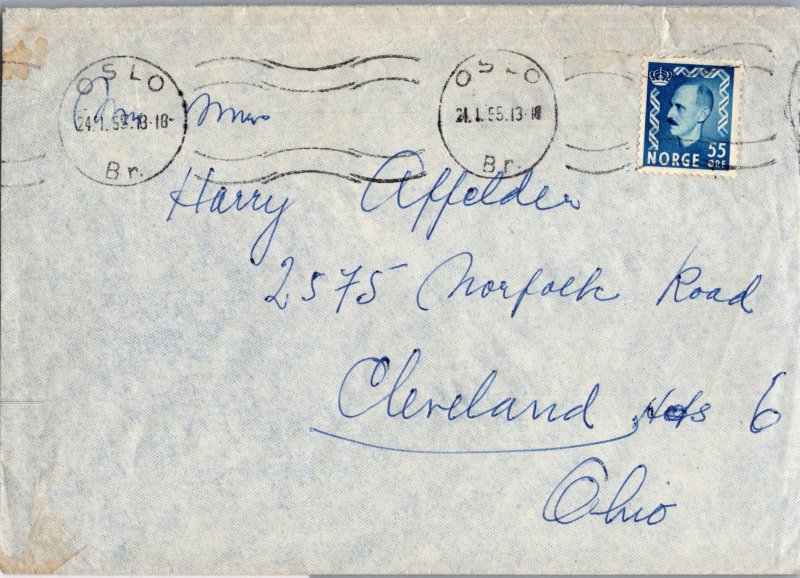 OSLO
24.1.55.13-18
Br.
OSLO
24.1.55.13-18
Br.
NORGE 55 ØRE
Mr - Mrs
Harry Affelder
2575 Norfolk Road
Cleveland Hts 6
Ohio